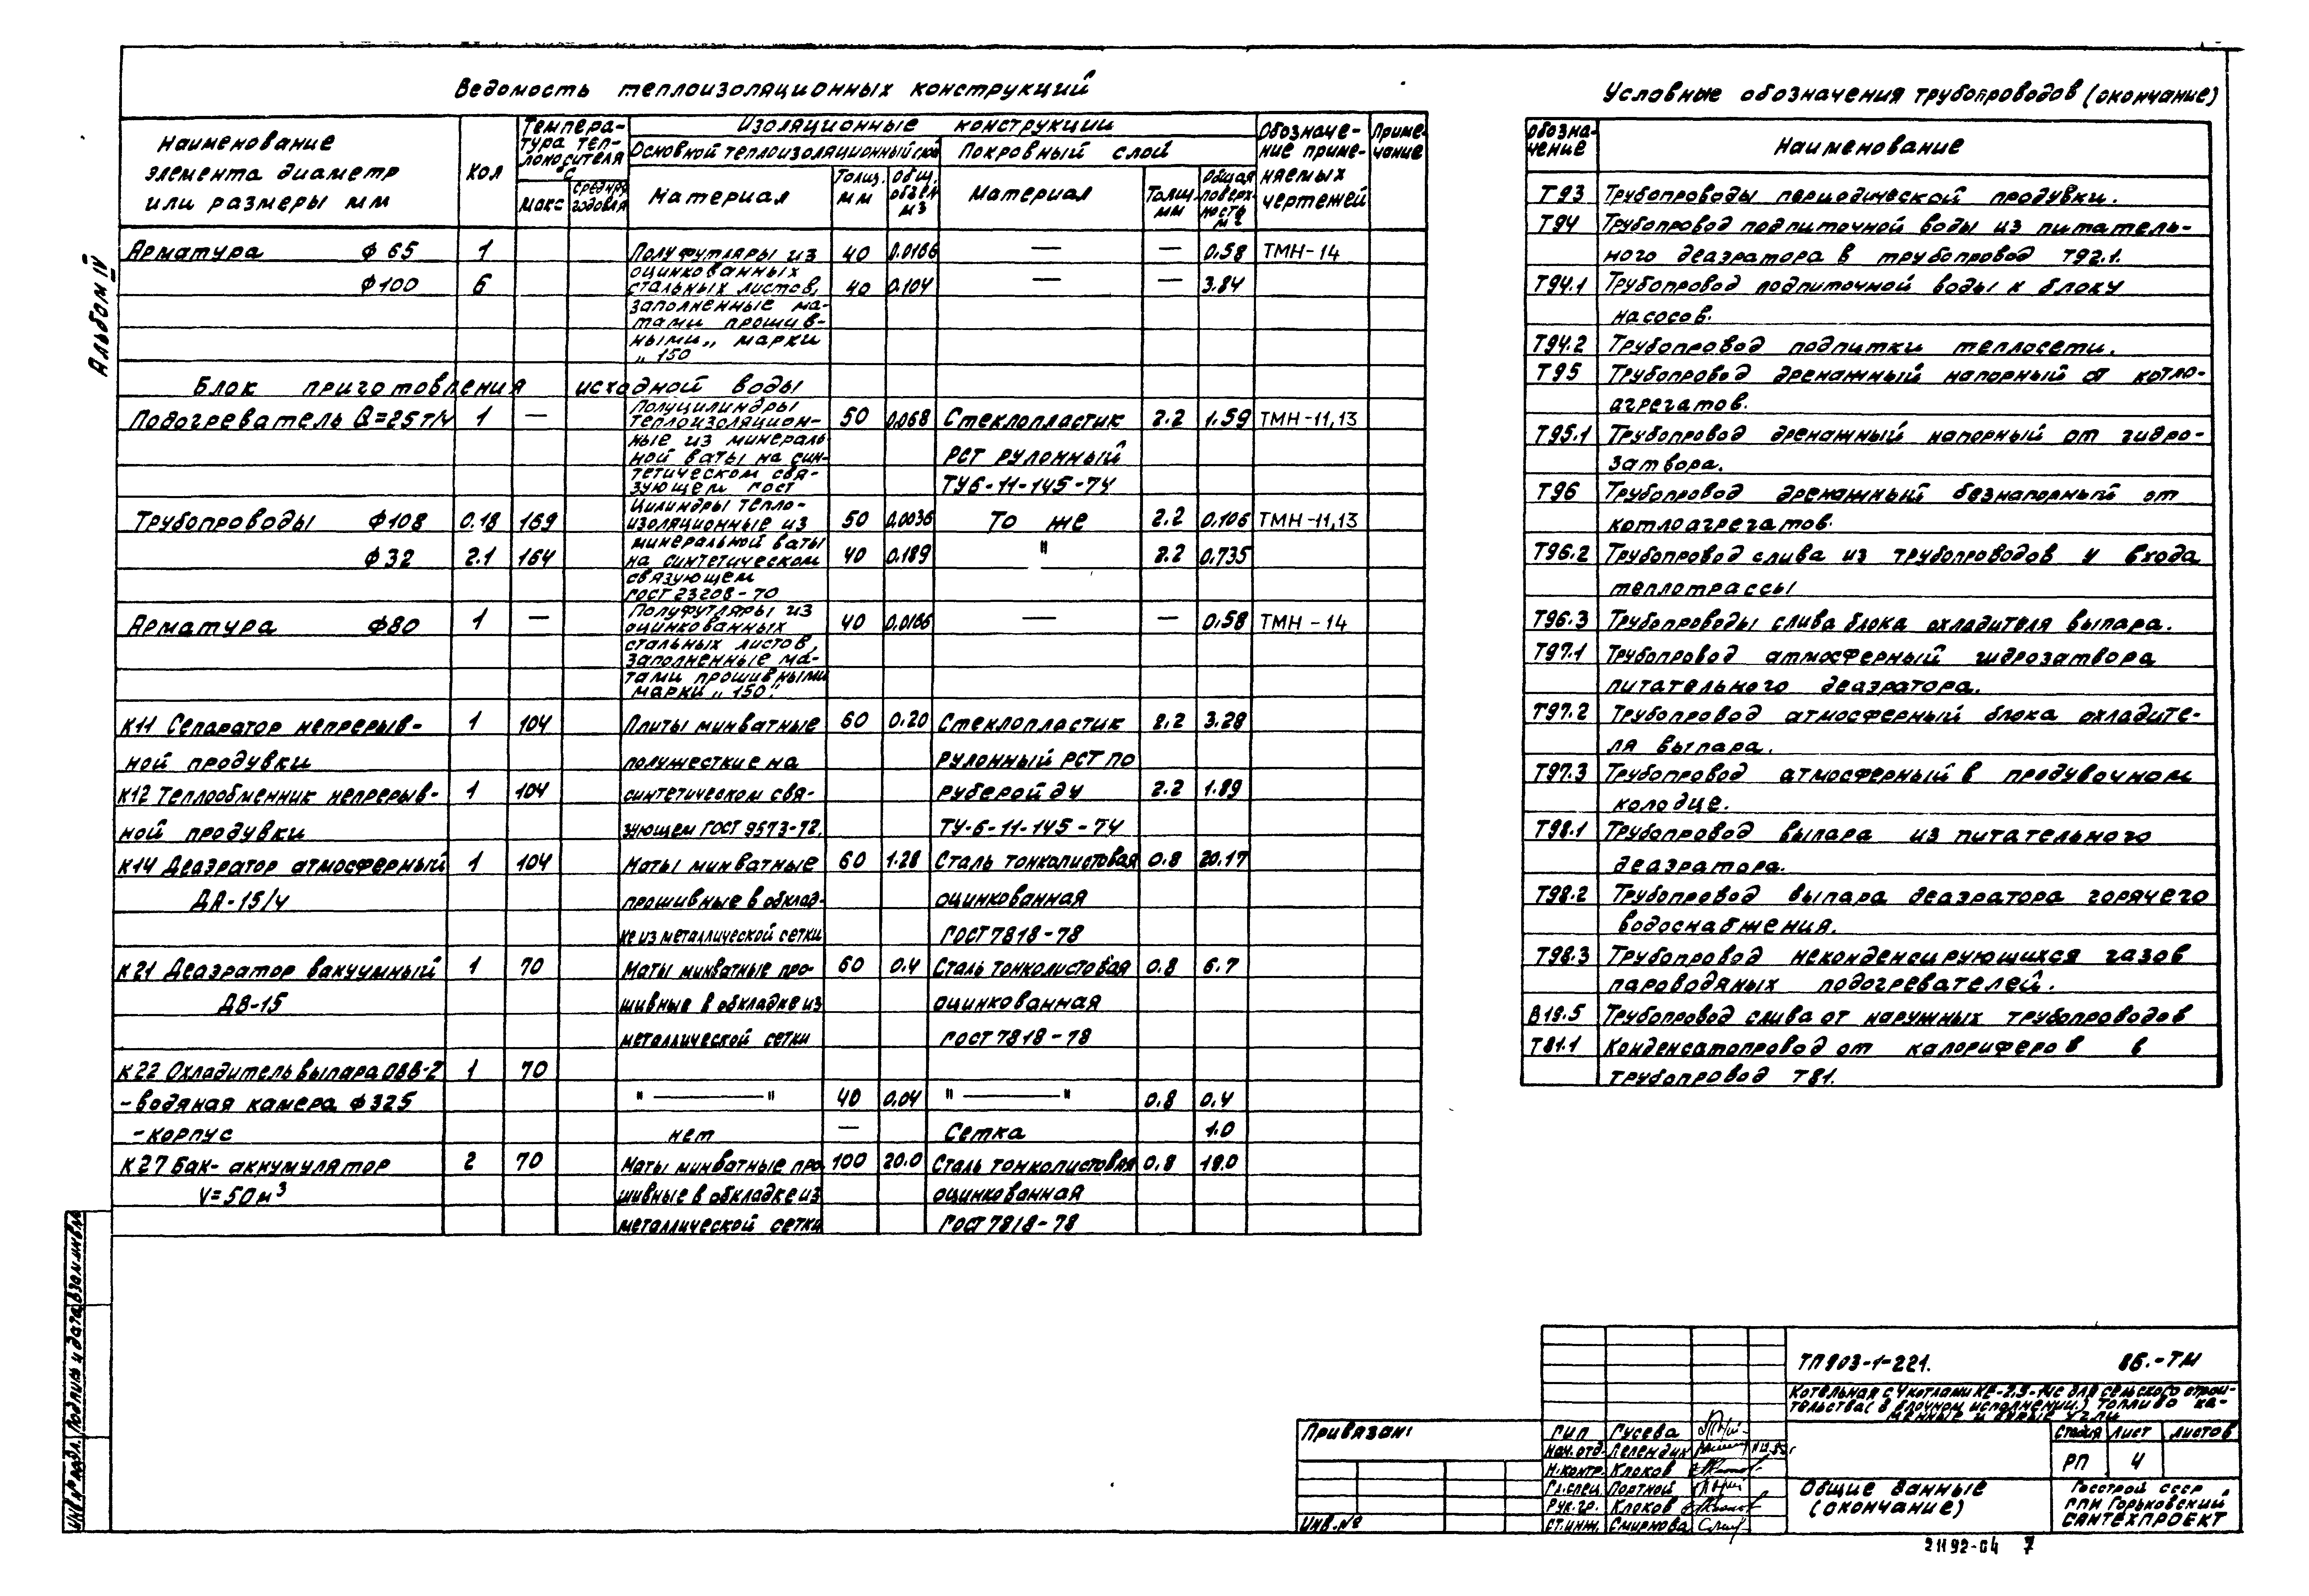 Альбом IV
Ведомость теплоизоляционных конструкций
Наименование элемента диаметр или размеры мм
Кол
Температура теплоносителя °С
макс
средняя годовая
Изоляционные конструкции
Основной теплоизоляционный слой
Покровный слой
Материал
Толщ. мм
общ. объем м3
Материал
Толщ. мм
Общая поверхность м2
Обозначение применяемых чертежей
Примечание
Арматура ф 65 1 Полуфутляры из 40 0.0166 — — 0.58 ТМН-14
оцинкованных
ф100 6 стальных листов, 40 0.104 — — 3.84
заполненные ма-
тами прошив-
ными,, марки
„ 150
Блок приготовления исходной воды
Полуцилиндры
Подогреватель Q=25т/ч 1 — теплоизоляцион- 50 0.068 Стеклопластик 2.2 1.59 ТМН-11,13
ные из минераль
ной ваты на син- РСТ рулонный
тетическом свя-
зующем ГОСТ ТУ6-11-145-74
Цилиндры тепло-
Трубопроводы ф108 0.18 169 изоляционные из 50 0.0036 То же 2.2 0.106 ТМН-11,13
минеральной ваты
ф32 2.1 164 на синтетическом 40 0.189 " 2.2 0.735
связующем
ГОСТ 23208-70
Полуфутляры из
Арматура ф80 1 — оцинкованных 40 0.0166 — — 0.58 ТМН-14
стальных листов,
заполненные ма-
тами прошивными
марки „ 150".
К11 Сепаратор непрерыв- 1 104 Плиты минватные 60 0.20 Стеклопластик 2.2 3.28
ной продувки полужесткие на рулонный РСТ по
К12 Теплообменник непрерыв- 1 104 синтетическом свя- рубероиду 2.2 1.89
ной продувки зующем ГОСТ 9573-72. ТУ-6-11-145-74
К14 Деаэратор атмосферный 1 104 Маты минватные 60 1.28 Сталь тонколистовая 0.8 20.17
ДА-15/4 прошивные в обклад- оцинкованная
ке из металлической сетки ГОСТ 7818-78
К21 Деаэратор вакуумный 1 70 Маты минватные про- 60 0.4 Сталь тонколистовая 0.8 6.7
ДВ-15 шивные в обкладке из оцинкованная
металлической сетки ГОСТ 7818-78
К22 Охладитель выпара ОВВ-2 1 70
- водяная камера ф325 " — " 40 0.04 " — " 0.8 0.4
- корпус нет — Сетка 1.0
К27 Бак- аккумулятор 2 70 Маты минватные про 100 20.0 Сталь тонколистовая 0.8 18.0
V=50м3 шивные в обкладке из оцинкованная
металлической сетки ГОСТ 7818-78
Условные обозначения трубопроводов (окончание)
Обозна-чение Наименование
Т93 Трубопроводы периодической продувки.
Т94 Трубопровод подпиточной воды из питатель-
ного деаэратора в трубопровод Т92.1.
Т94.1 Трубопровод подпиточной воды к блоку
насосов.
Т94.2 Трубопровод подпитки теплосети.
Т95 Трубопровод дренажный напорный от котло-
агрегатов.
Т95.1 Трубопровод дренажный напорный от гидро-
затвора.
Т96 Трубопровод дренажный безнапорный от
котлоагрегатов.
Т96.2 Трубопровод слива из трубопроводов у входа
теплотрассы
Т96.3 Трубопроводы слива блока охладителя выпара.
Т97.1 Трубопровод атмосферный гидрозатвора
питательного деаэратора.
Т97.2 Трубопровод атмосферный блока охладите-
ля выпара.
Т97.3 Трубопровод атмосферный в продувочном
колодце.
Т98.1 Трубопровод выпара из питательного
деаэратора.
Т98.2 Трубопровод выпара деаэратора горячего
водоснабжения.
Т98.3 Трубопровод неконденсирующихся газов
пароводяных подогревателей.
В19.5 Трубопровод слива от наружных трубопроводов
Т81.1 Конденсатопровод от калориферов в
трубопровод Т81.
ТП903-1-221. 86.-ТМ
Котельная с 4 котлами КЕ-2.5-14с для сельского строи-
тельства( в блочном исполнении.) Топливо ка-
менные и бурые угли
Привязан:
Инв.№
ГИП Гусева
Нач.отд. Лелендик
Н.контр. Клоков
Гл.спец. Портной
Рук.гр. Клоков
Ст.инж. Смирнова
Стадия Лист Листов
РП 4
Общие данные
(окончание)
Госстрой СССР
ГПИ Горьковский
САНТЕХПРОЕКТ
21192-04 7
Инв.№ подл. Подпись и дата Взам.инв.№